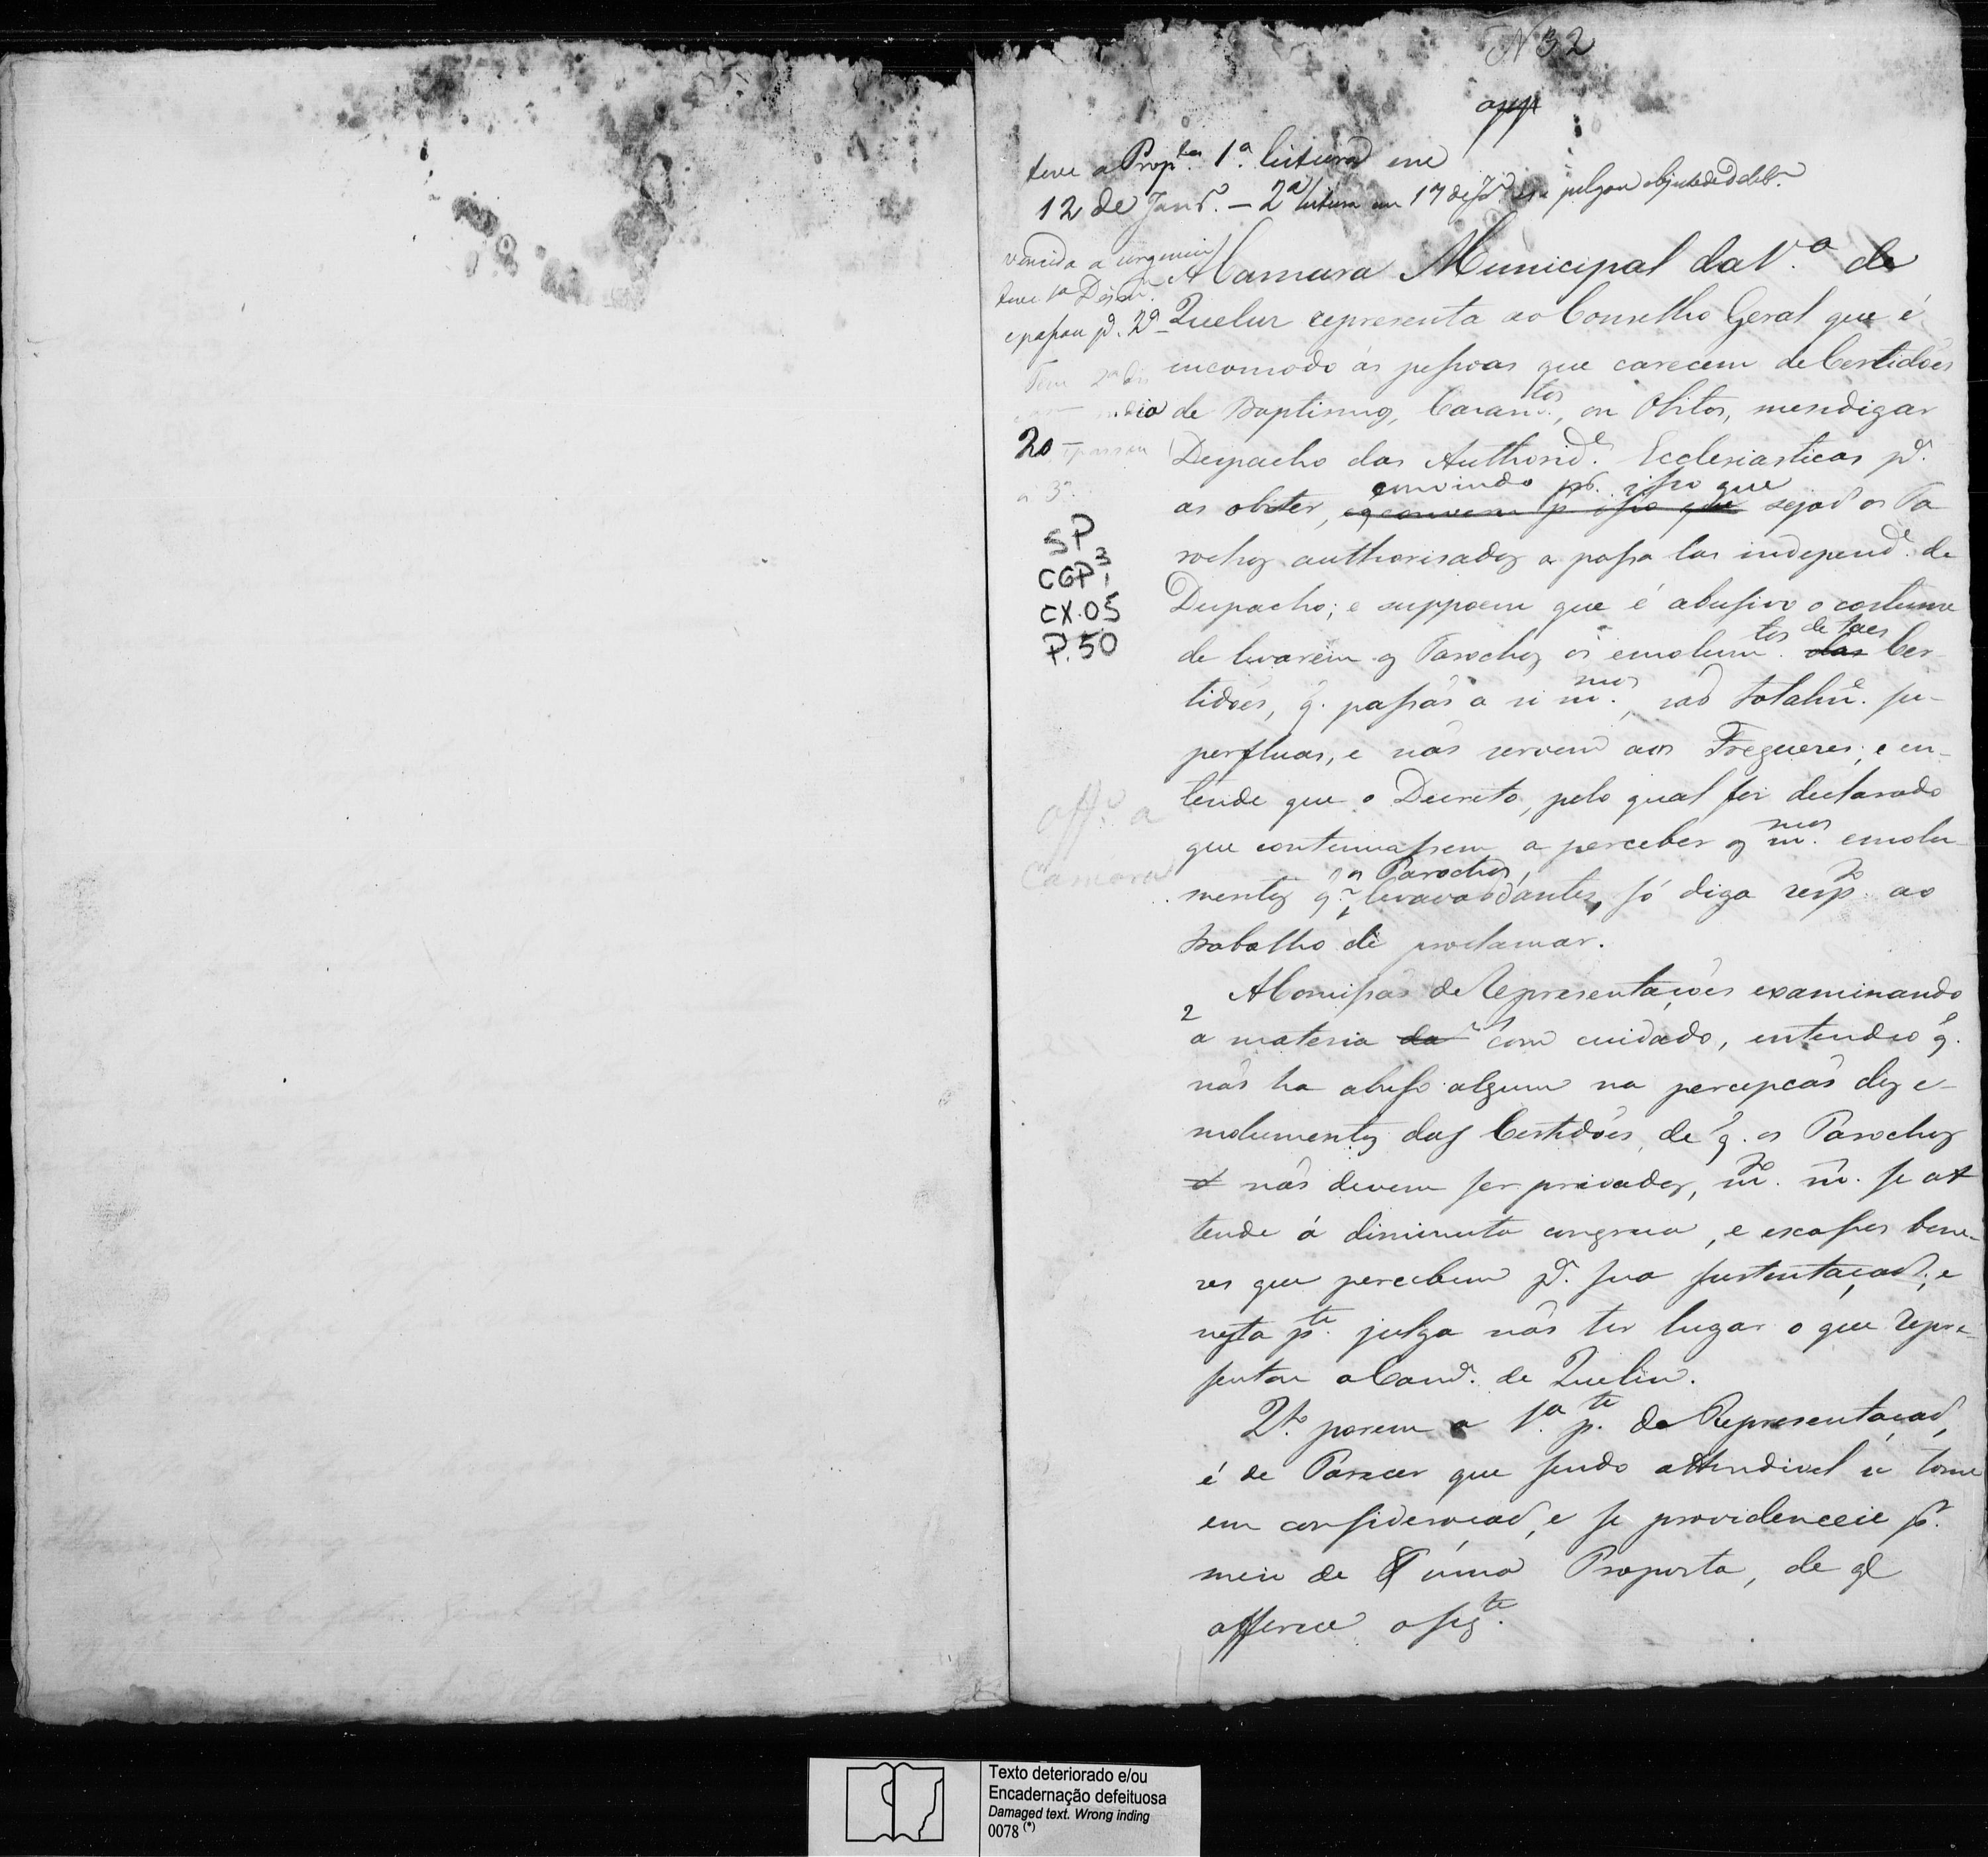 N 32
app
teve a Prop.ta 1.ª leitura em
12 de Janr.º – 2ª leitura em 17 de Jr.º e se julgou objecto de delib.m
vencida a urgencia
teve 1ª Discm.
e passou p.ª 2ª
Teve 2ª dis
dia
20 – passou
a 3ª
SP
CGP1 3
CX.05
P.50
off.º a
Camara
A Camara Municipal da V.ª de
Queluz representa ao Conselho Geral que é
encomodo ás pessoas que carecem de Certidões
de Baptismos, Casam.tos, ou Obitos, mendigar
Despacho das Authorid.es Ecclesiasticas p.ª
convindo por isso que
as obter, e convem p isso que sejaõ os Pa
rochos authorisados a passa las independ.e de
Despacho; e suppoem que é abusivo o costume
de levarem os Parochos os emolum.tos de taes das Cer
tidões, q. passaõ a si m.mos, saõ totalm.e su-
perfluas, e naõ servem aos Freguezes; e en-
tende que o Decreto, pelo qual foi declarado
que continuassem a perceber os m.mos emolu
mentos q.e os Parochos, levavaõ d'antes, só diga resp.to ao
trabalho de proclamar.
A Comissaõ de Representações examinando
2
a materia da com cuidado, entendeo q.
naõ ha abuso algum na percepcaõ dos e-
molumentos das Certidões, de q. os Parochos
naõ devem ser privados, m.to m. se at
tende á diminuta congrua, e escassos bene-
ses que percebem p.ª sua sustentaçaõ; e
nesta p.te julga naõ ter lugar o que repre-
sentou a Cam.ª de Queluz.
Q.to porem a 1.ª p.te da Representaçaõ,
é de Parecer que sendo attendivel se tome
em consideraçaõ, e se providenceie p.r
meio de uma Proposta, de q
offerece a seg.te
Texto deteriorado e/ou
Encadernação defeituosa
Damaged text. Wrong inding
0078 (*)